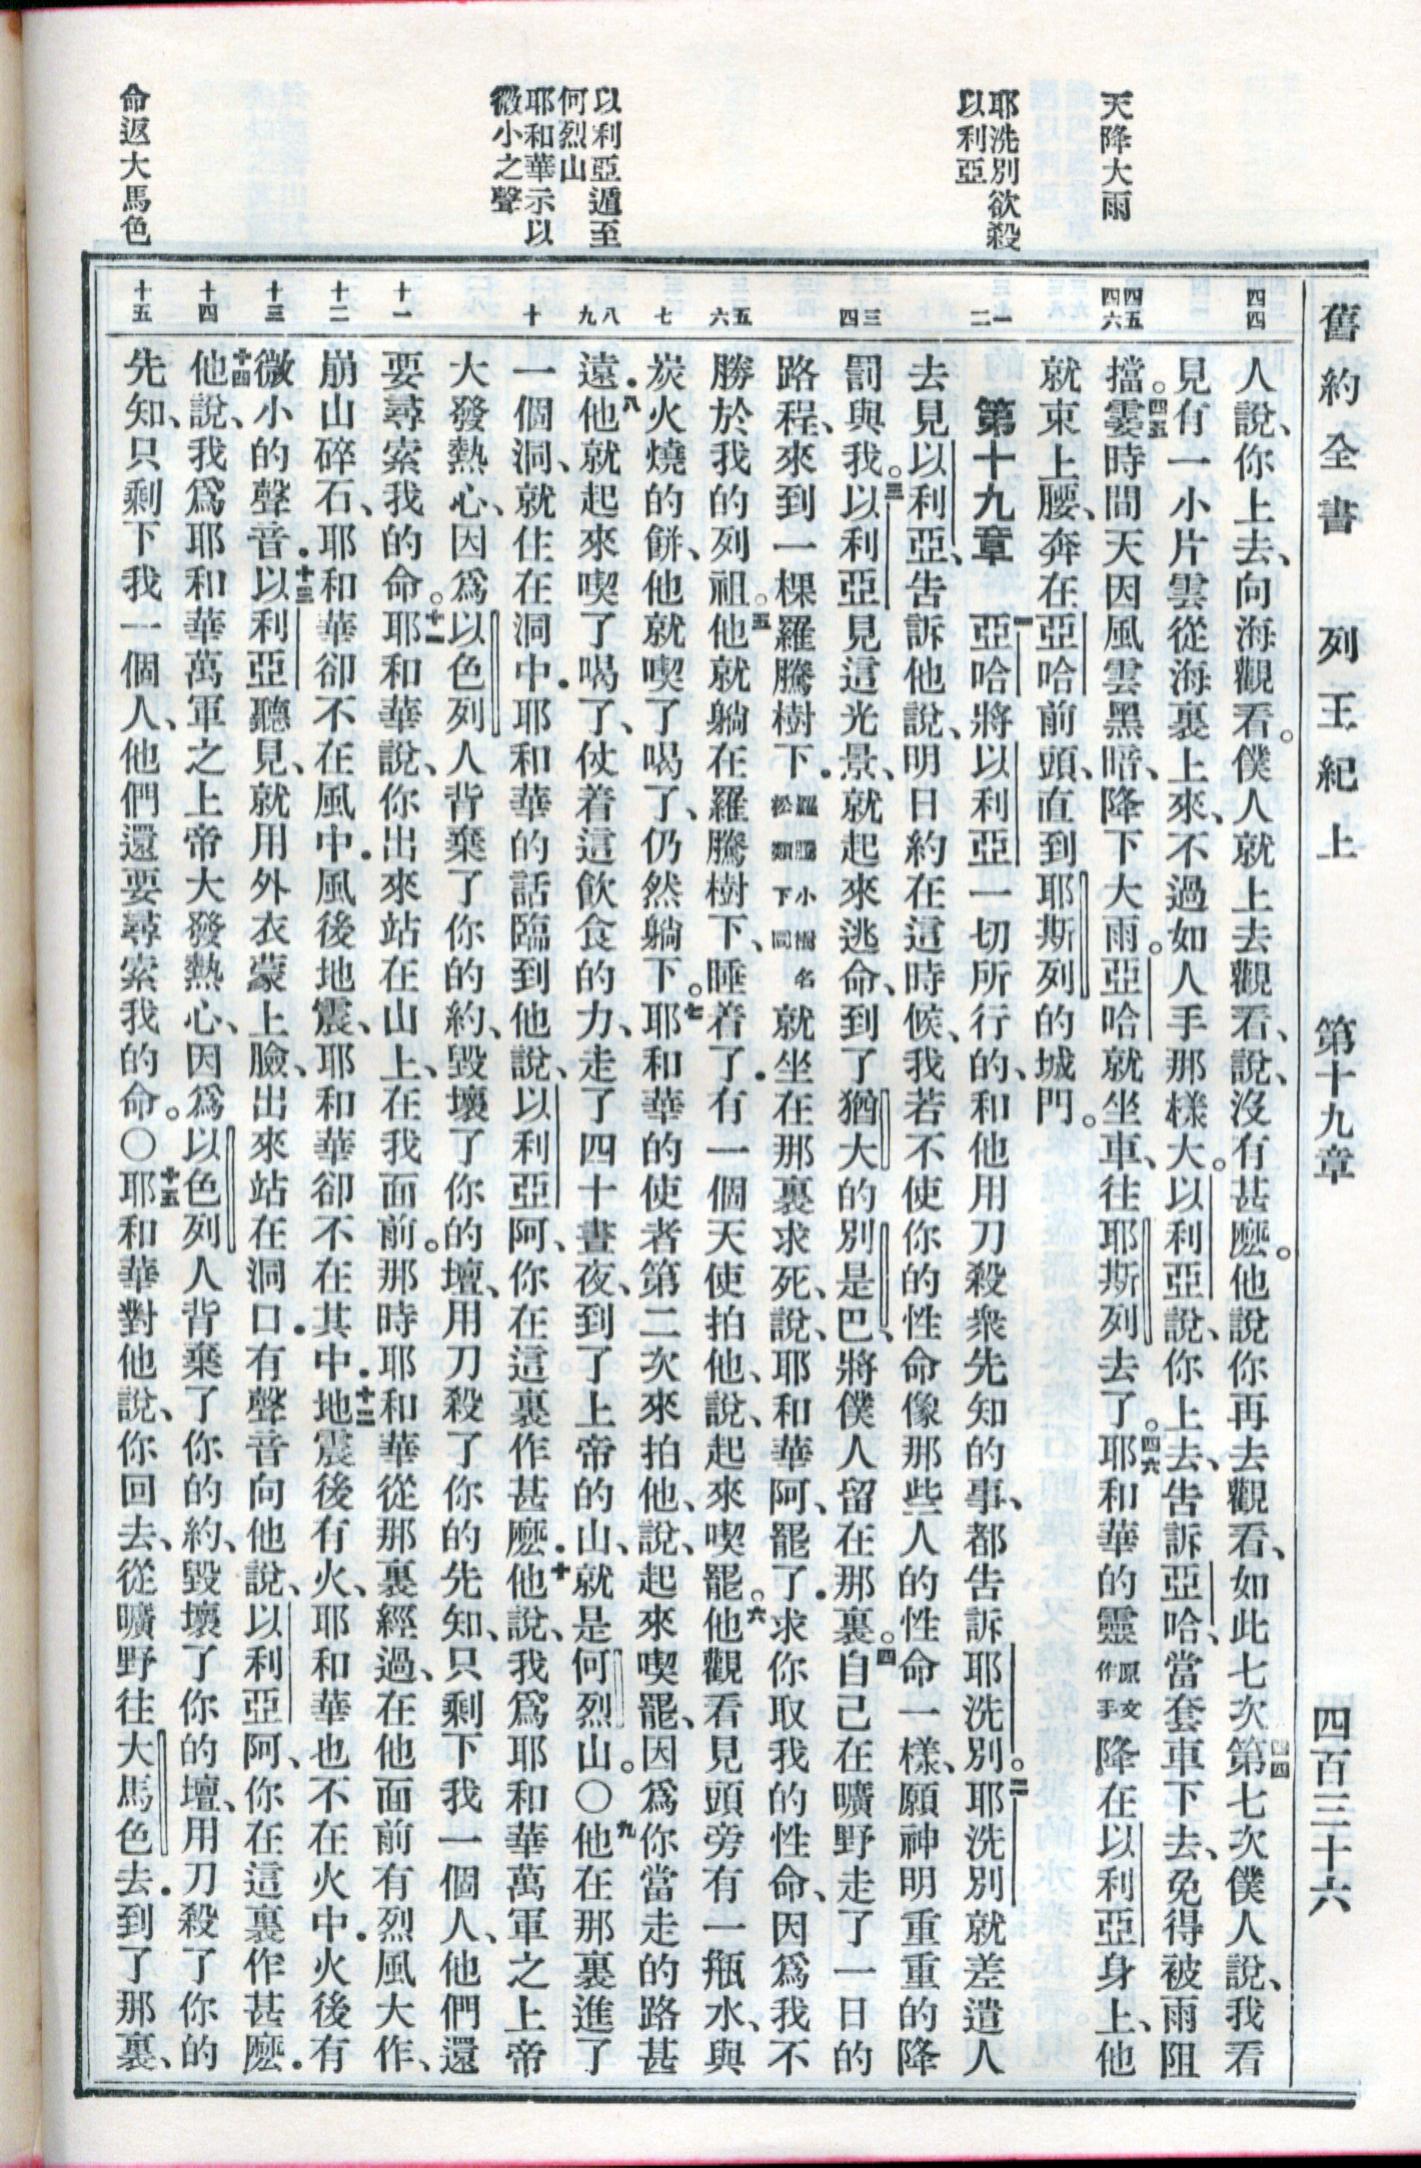 舊約全書　列王紀上　第十九章　四百三十六
天降大雨
耶洗別欲殺
以利亞
以利亞遁至
何烈山
耶和華示以
微小之聲
命返大馬色
四四
四五
四六
一
二
三
四
五
六
七
八
九
十
十一
十二
十三
十四
十五
人說、你上去、向海觀看。僕人就上去觀看、說、沒有甚麼。他說你再去觀看、如此七次四四第七次僕人說、我看
見有一小片雲從海裏上來、不過如人手那樣大。以利亞說、你上去、告訴亞哈、當套車下去、免得被雨阻
擋。四五霎時間天因風雲黑暗、降下大雨。亞哈就坐車、往耶斯列去了。四六耶和華的靈原文作手降在以利亞身上、他
就束上腰、奔在亞哈前頭、直到耶斯列的城門。
第十九章　一亞哈將以利亞一切所行的、和他用刀殺衆先知的事、都告訴耶洗別。二耶洗別就差遣人
去見以利亞、告訴他說、明日約在這時候、我若不使你的性命像那些人的性命一樣、願神明重重的降
罰與我。三以利亞見這光景、就起來逃命、到了猶大的別是巴、將僕人留在那裏。四自己在曠野走了一日的
路程、來到一棵羅騰樹下．羅騰小樹名松類下同就坐在那裏求死、說、耶和華阿、罷了．求你取我的性命、因爲我不
勝於我的列祖。五他就躺在羅騰樹下、睡着了．有一個天使拍他、說、起來喫罷。六他觀看見頭旁有一瓶水、與
炭火燒的餅、他就喫了喝了、仍然躺下。七耶和華的使者第二次來拍他、說、起來喫罷、因爲你當走的路甚
遠．八他就起來喫了喝了、仗着這飲食的力、走了四十晝夜、到了上帝的山、就是何烈山。〇九他在那裏進了
一個洞、就住在洞中．耶和華的話臨到他、說、以利亞阿、你在這裏作甚麼．十他說、我爲耶和華萬軍之上帝
大發熱心、因爲以色列人背棄了你的約、毀壞了你的壇、用刀殺了你的先知、只剩下我一個人、他們還
要尋索我的命。十一耶和華說、你出來站在山上、在我面前。那時耶和華從那裏經過、在他面前有烈風大作、
崩山碎石、耶和華卻不在風中．風後地震、耶和華卻不在其中．十二地震後有火、耶和華也不在火中．火後有
微小的聲音．十三以利亞聽見、就用外衣蒙上臉、出來站在洞口．有聲音向他說、以利亞阿、你在這裏作甚麼．
十四他說、我爲耶和華萬軍之上帝大發熱心、因爲以色列人背棄了你的約、毀壞了你的壇、用刀殺了你的
先知、只剩下我一個人、他們還要尋索我的命。〇十五耶和華對他說、你回去、從曠野往大馬色去．到了那裏、